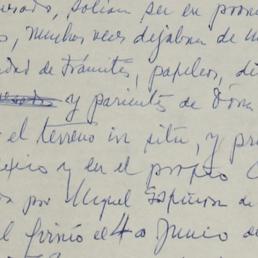 usado, solían ser en prom
s, muchas veces dejaban de
dad de trámites, papeleos, di
y parientes de Dora
el terreno in situ, y pr
éxico y en el propio C
por Miguel Espinosa de
l firmó el 4 o Junio de